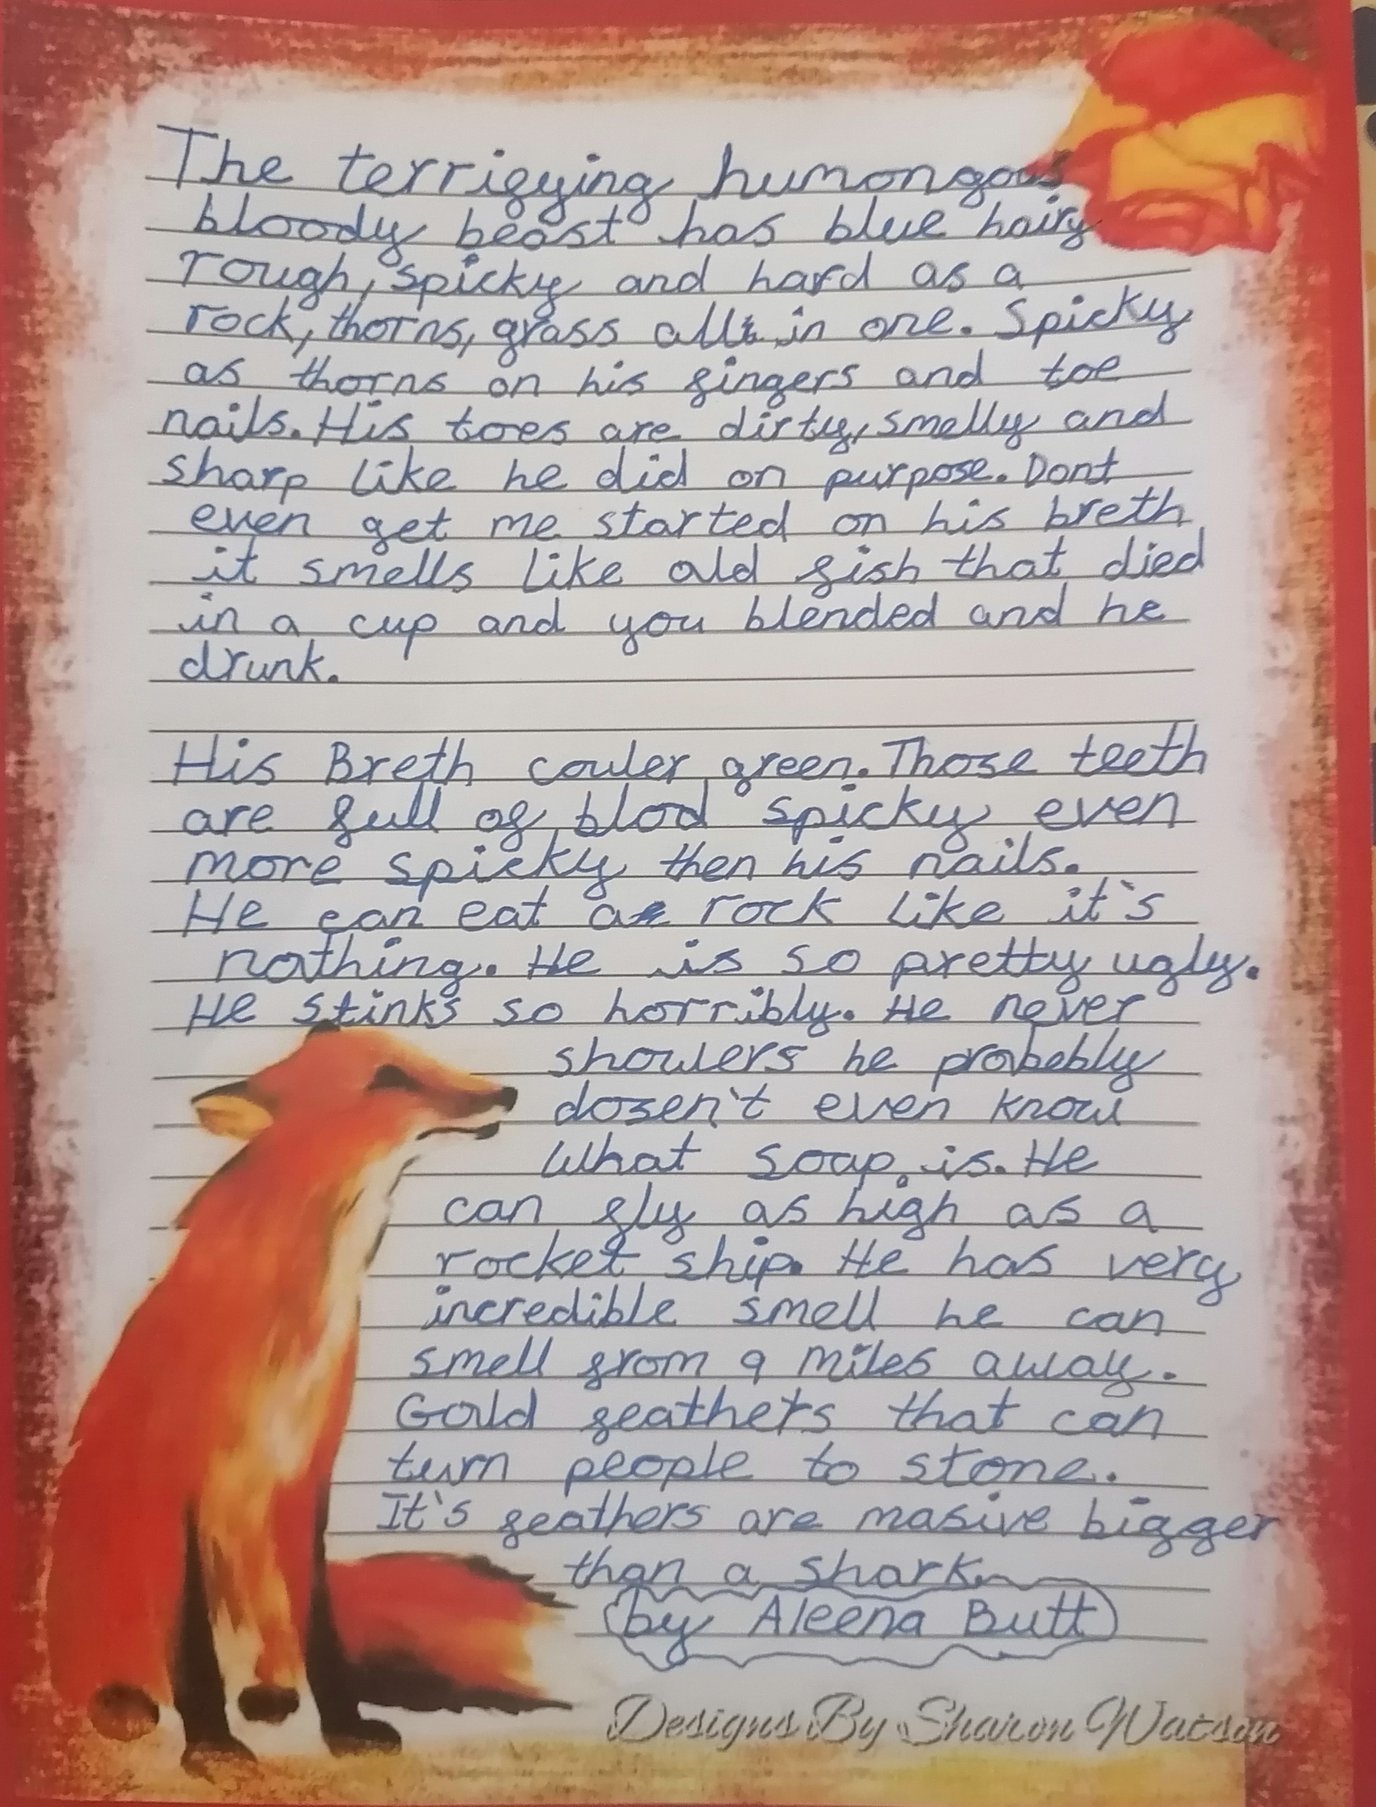 The terrifying humongous
bloody beast has blue hairy
rough, spicky and hard as a
rock, thorns, grass all in one. Spicky
as thorns on his fingers and toe
nails. His toes are dirty, smelly and
sharp like he did on purpose. Dont
even get me started on his breth
it smells like old fish that died
in a cup and you blended and he
drunk.
His Breth couler green. Those teeth
are full of blod spicky even
more spicky then his nails.
He can eat a rock like it's
nothing. He is so pretty ugly.
He stinks so horribly. He never
showers he probebly
dozen't even know
what soap is. He
can fly as high as a
rocket ship. He has very
incredible smell he can
smell from 9 miles away.
Gold feathers that can
turn people to stone.
It's feathers are masive bigger
than a shark.
by Aleena Butt
Designs By Sharon Watson